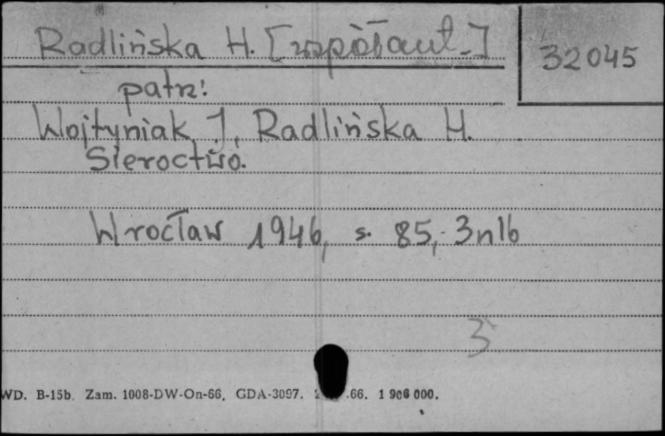 Radlińska H. [współaut.]
32045
patrz:
Wojtyniak J, Radlińska H.
Sieroctwo.
Wrocław 1946, s. 85, 3nlb
3
WD. B-15b. Zam. 1008-DW-On-66. GDA-3097. .66. 1 906 000.